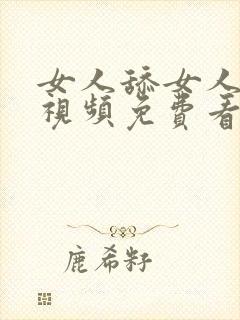 女人舔女人
視頻免費看
鹿希籽